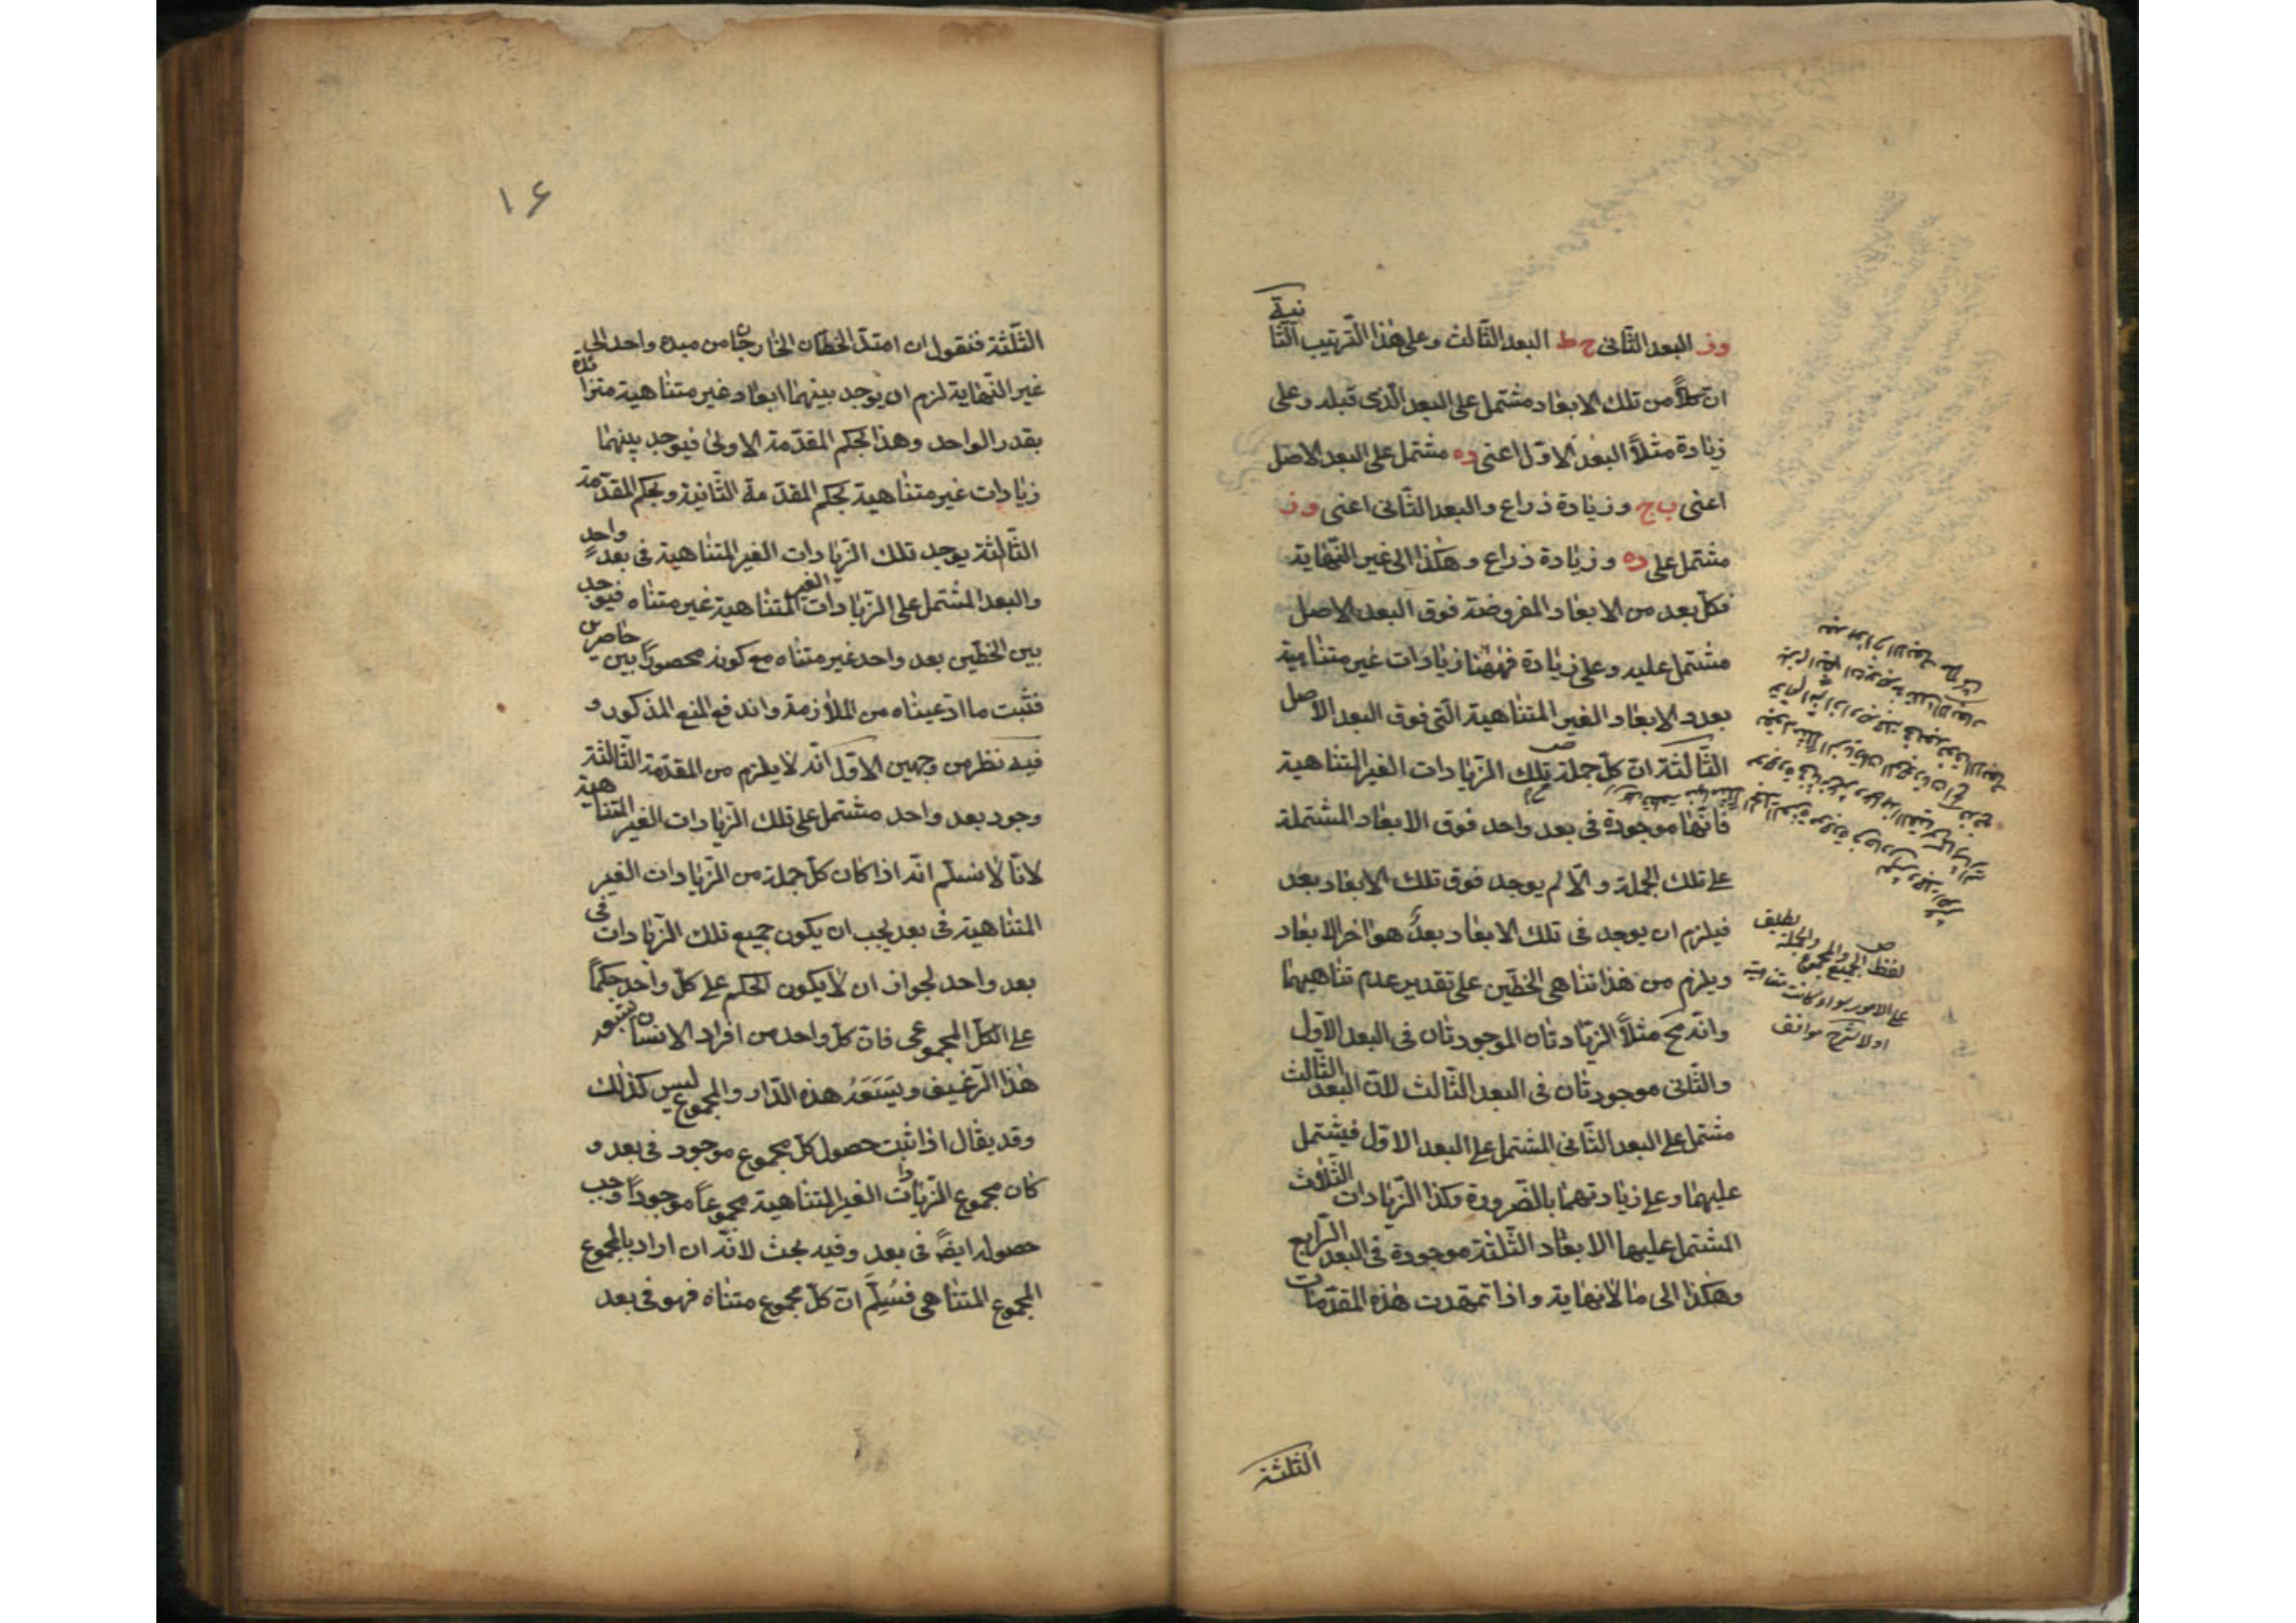 وز البعد الثّانى ح ط البعد الثّالث وعلى هٰذا التّرتيب الثّانية
انّ كلّاً من تلك الابعٰاد مشتمل على البعد الّذى قبله وعلى
زيٰادة مثلاً البعُد الاوّل اعنى ده مشتمل على البعد الاصل
اعنى ب ج وزيٰادة ذراع والبعد الثّانى اعنى وز
مشتمل على ده وزيٰادة ذراع وهٰكذا الى غير النّهٰاية
فكلّ بعد من الابعٰاد المفروضة فوق البعد الاصل
مشتمل عليه وعلى زيٰادة فهٰهُنا زيٰادات غير متنٰاهية
بعدد الابعٰاد الغير المتنٰاهية الّتى فوق البعد الاصل
الثّالثة انّ كلّ جملة تلك الزّيٰادات الغير المتنٰاهية
فانّهٰا موجودة فى بعد واحد فوق الابعٰاد المشتملة
على تلك الجملة والّا لم يوجد فوق تلك الابعٰاد بعد
فيلزم ان يوجد فى تلك الابعٰاد بعدٌ هو اٰخر الابعٰاد
ويلزم من هٰذا تنٰاهى الخطّين على تقدير عدم تنٰاهيهمٰا
وانّه مح مثلاً الزّيٰادتٰان الموجودتٰان فى البعد الاوّل
والثّانى موجودتٰان فى البعد الثّالث لانّ البعد الثّالث
مشتمل على البعد الثّانى المشتمل على البعد الاوّل فيشتمل
عليهمٰا وعلى زيٰادتهمٰا بالضّرورة وكذا الزّيٰادات الثّلٰاث
المشتمل عليهٰا الابعٰاد الثّلٰثة موجودة فى البعد الرّابع
وهٰكذا الى مٰا لانهٰاية واذا تمهّدت هٰذه المقدّمٰات
الثّلٰثة
لفظ الجميع والمجموع والجملة يطلق
على الامور سواء كانت متناهية
اولا شرح مواقف
١۶
الثّلٰثة فنقول ان امتدّ الخطّان الخٰارجٰان من مبدء واحد الى
غير النّهٰاية لزم ان يوجد بينهمٰا ابعٰاد غير متنٰاهية متزٰائدة
بقدر الواحد وهٰذا بحكم المقدّمة الاولىٰ فيوجد بينهمٰا
زيٰادات غير متنٰاهية بحكم المقدّمة الثّانية وبحكم المقدّمة
الثّالثة يوجد تلك الزّيٰادات الغير المتنٰاهية فى بعد واحد
والبعد المشتمل على الزّيٰادات الغير المتنٰاهية غير متنٰاه فيوجد
بين الخطّين بعد واحد غير متنٰاه مع كونه محصوراً بين حٰاصرين
فثبت مٰا ادّعينٰاه من الملٰازمة واندفع المنع المذكور و
فيه نظر من وجهين الاوّل انّه لٰا يلزم من المقدّمة الثّالثة
وجود بعد واحد مشتمل على تلك الزّيٰادات الغير المتنٰاهية
لانّا لٰا نسلّم انّه اذا كان كلّ جملة من الزّيٰادات الغير
المتنٰاهية فى بعد يجب ان يكون جميع تلك الزّيٰادات فى
بعد واحد لجواز ان لٰا يكون الحكم على كلّ واحد حكماً
على الكلّ المجموعى فانّ كلّ واحد من افراد الانسٰان يشبعه
هٰذا الرّغيف ويَسَعُهُ هذه الدّار والمجموع ليس كذٰلك
وقد يقٰال اذا ثبت حصول كلّ مجموع موجود فى بعد و
كٰان مجموع الزّيٰادات الغير المتنٰاهية مجموعاً موجوداً وجب
حصوله ايضاً فى بعد وفيه بحث لانّه ان اراد بالمجموع
المجموع المتنٰاهى فسُلّم انّ كلّ مجموع متنٰاه فهو فى بعد